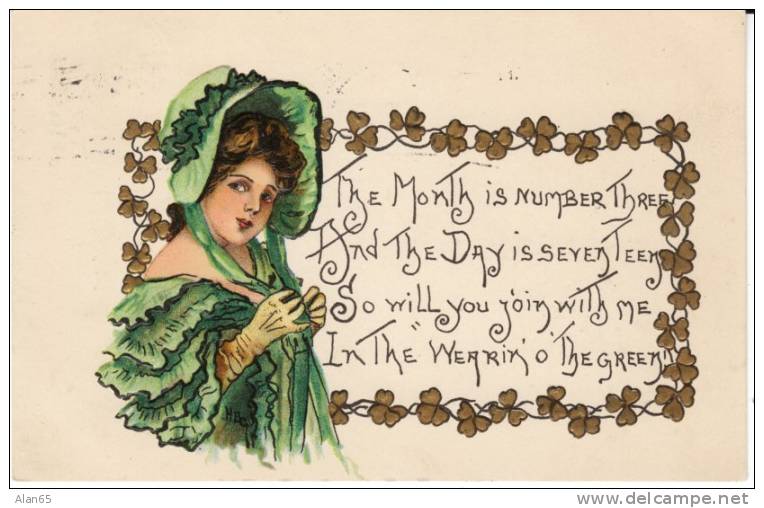 The Month is number Three
And The Day is seven Teen
So will you join with me
In The "Wearin' o' The green"!
HBG
Alan65
delcampe.net